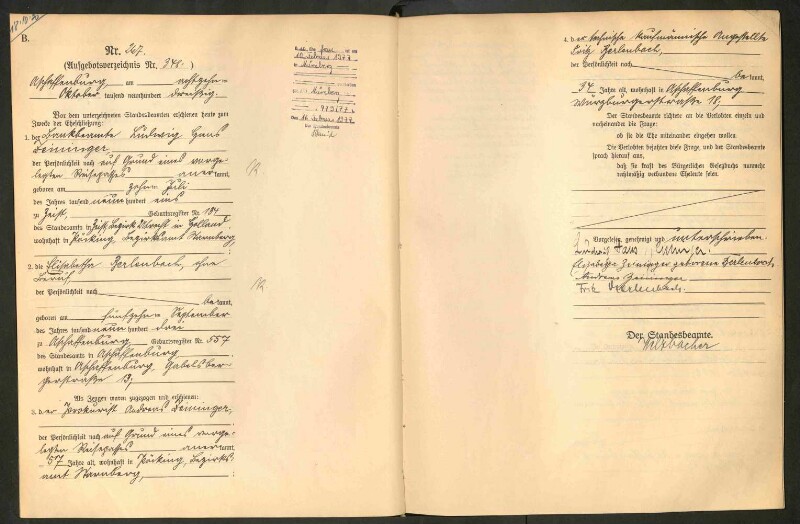 18.10.30
B.
Nr. 267.
(Aufgebotsverzeichnis Nr. 248.)
Aschaffenburg am achtzehn-
Oktober tausend neunhundert dreißig.
Vor dem unterzeichneten Standesbeamten erschienen heute zum
Zwecke der Eheschließung:
1. der Bankbeamte Ludwig Hans
Deininger,
der Persönlichkeit nach auf Grund eines vorge-
legten Reisepasses anerkannt,
geboren am zehnten Juli
des Jahres tausend neunhundert eins
zu Zeist, Geburtsregister Nr. 184
des Standesamts in Zeist Bezirk Utrecht in Holland
wohnhaft in Pöcking, Bezirksamt Starnberg;
2. die Elisabetha Berlenbach, ohne
Beruf
der Persönlichkeit nach bekannt,
geboren am fünfzehn- September
des Jahres tausend neunhundert drei
zu Aschaffenburg Geburtsregister Nr. 557
des Standesamts in Aschaffenburg
wohnhaft in Aschaffenburg, Gabelsber-
gerstraße 13;
Als Zeugen waren zugezogen und erschienen:
3. der Prokurist Andreas Deininger,
der Persönlichkeit nach auf Grund eines vorge-
legten Reisepasses anerkannt,
57 Jahre alt, wohnhaft in Pöcking, Bezirks-
amt Starnberg,
Februar 1977
Nürnberg
Nürnberg
Februar 1977
4. der technische kaufmännische Angestellte
Fritz Berlenbach,
der Persönlichkeit nach bekannt,
34 Jahre alt, wohnhaft in Aschaffenburg
Würzburgerstraße 18;
Der Standesbeamte richtete an die Verlobten einzeln und
nacheinander die Frage:
ob sie die Ehe miteinander eingehen wollen.
Die Verlobten bejahten diese Frage, und der Standesbeamte
sprach hierauf aus,
daß sie kraft des Bürgerlichen Gesetzbuchs nunmehr
rechtmäßig verbundene Eheleute seien.
Vorgelesen, genehmigt und unterschrieben
Ludwig Hans Deininger.
Elisabetha Deininger geborene Berlenbach.
Andreas Deininger.
Fritz Berlenbach.
Der Standesbeamte.